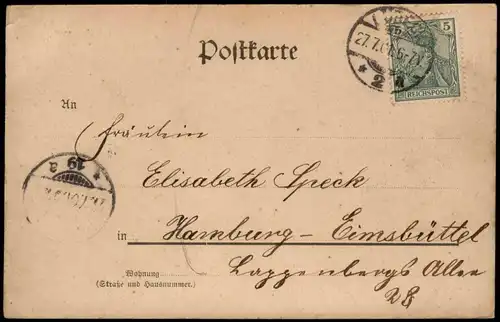 Postkarte
5
REICHSPOST
27.7.01. 6-7N
* 2 a
An
Fräulein
Elisabeth Speck
* 19 a
in Hamburg - Eimsbüttel
Lappenbergs Allee
28
Wohnung
(Straße und Hausnummer.)